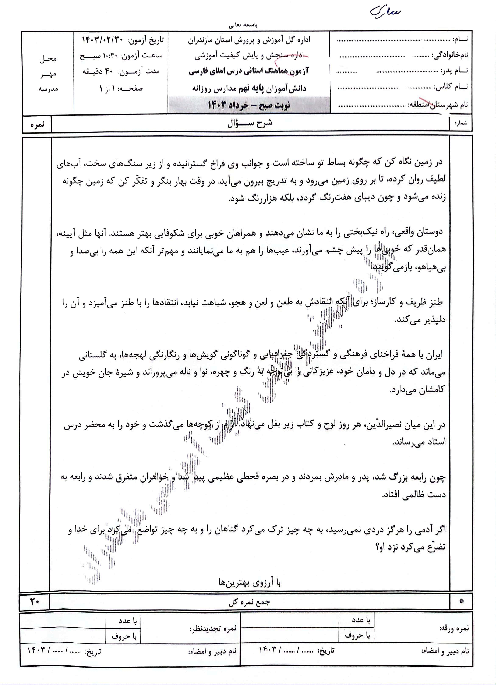 باسمه تعالی
نام: اداره کل آموزش و پرورش استان مازندران تاریخ آزمون: ۱۴۰۳/۰۲/۳۰
نام خانوادگی: اداره سنجش و پایش کیفیت آموزشی ساعت آزمون: ۱۰:۳۰ صبح
نام پدر: آزمون هماهنگ استانی درس املای فارسی مدت آزمون: ۴۰ دقیقه
نام کلاس: دانش‌آموزان پایه نهم مدارس روزانه صفحه: ۱ از ۱
نام شهرستان/منطقه: نوبت صبح - خرداد ۱۴۰۳
محل
مهر
مدرسه
شرح سؤال نمره
در زمین نگاه کن که چگونه بساط تو ساخته است و جوانب وی فراخ گسترانیده و از زیر سنگ‌های سخت، آب‌های
لطیف روان کرده، تا بر روی زمین می‌رود و به تدریج بیرون می‌آید. در وقت بهار بنگر و تفکّر کن که زمین چگونه
زنده می‌شود و چون دیبای هفت‌رنگ گردد، بلکه هزاررنگ شود.
دوستان واقعی، راه نیک‌بختی را به ما نشان می‌دهند و همراهان خوبی برای شکوفایی بهتر هستند. آنها مثل آیینه،
همان‌قدر که خوبی‌ها را پیش چشم می‌آورند، عیب‌ها را هم به ما می‌نمایانند و مهم‌تر آنکه این همه را بی‌صدا و
بی‌هیاهو، بازمی‌گویند.
طنز ظریف و کارساز؛ برای آنکه انتقادش به طعن و لعن و هجو، شباهت نیابد، انتقادها را با طنز می‌آمیزد و آن را
دلپذیر می‌کند.
ایران با همهٔ فراخنای فرهنگی و گستردگی جغرافیایی و گوناگونی گویش‌ها و رنگارنگی لهجه‌ها، به گلستانی
می‌ماند که در دل و دامان خود، عزیزکانی را با رنگ و چهره، نوا و ناله می‌پروراند و شیرهٔ جان خویش در
کامشان می‌دارد.
در این میان نصیرالدّین، هر روز لوح و کتاب زیر بغل می‌نهاد، از کوچه‌ها می‌گذشت و خود را به محضر درس
استاد می‌رساند.
چون رابعه بزرگ شد، پدر و مادرش بمردند و در بصره قحطی عظیمی پیدا شد و خواهران متفرق شدند و رابعه به
دست ظالمی افتاد.
اگر آدمی را هرگز دردی نمی‌رسید، به چه چیز ترک می‌کرد گناهان را و به چه چیز تواضع می‌کرد برای خدا و
تضرّع می‌کرد نزد او؟
با آرزوی بهترین‌ها
جمع نمره کل ۲۰
نمره ورقه: با عدد نمره تجدیدنظر: با عدد
با حروف با حروف
نام دبیر و امضاء: تاریخ: ..... / ..... / ۱۴۰۳ نام دبیر و امضاء: تاریخ: ..... / ..... / ۱۴۰۳